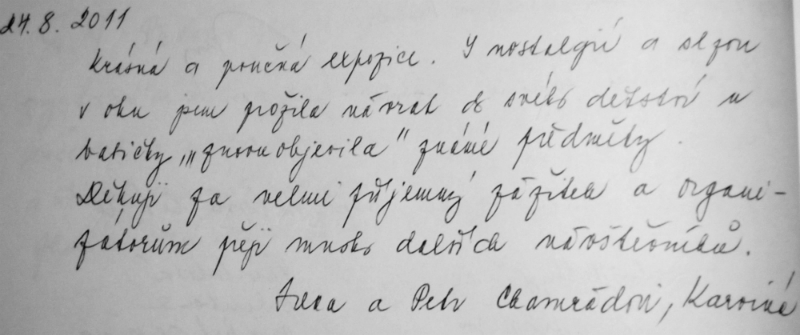 24.8. 2011
Krásná a poučná expozice. S nostalgií a slzou
v oku jsem prožila návrat do svého dětství u
babičky, „znovuobjevila" známé předměty.
Děkuji za velmi příjemný zážitek a organi-
zátorům přeji mnoho dalších návštěvníků.
a Petr Chamrádovi, Karviná